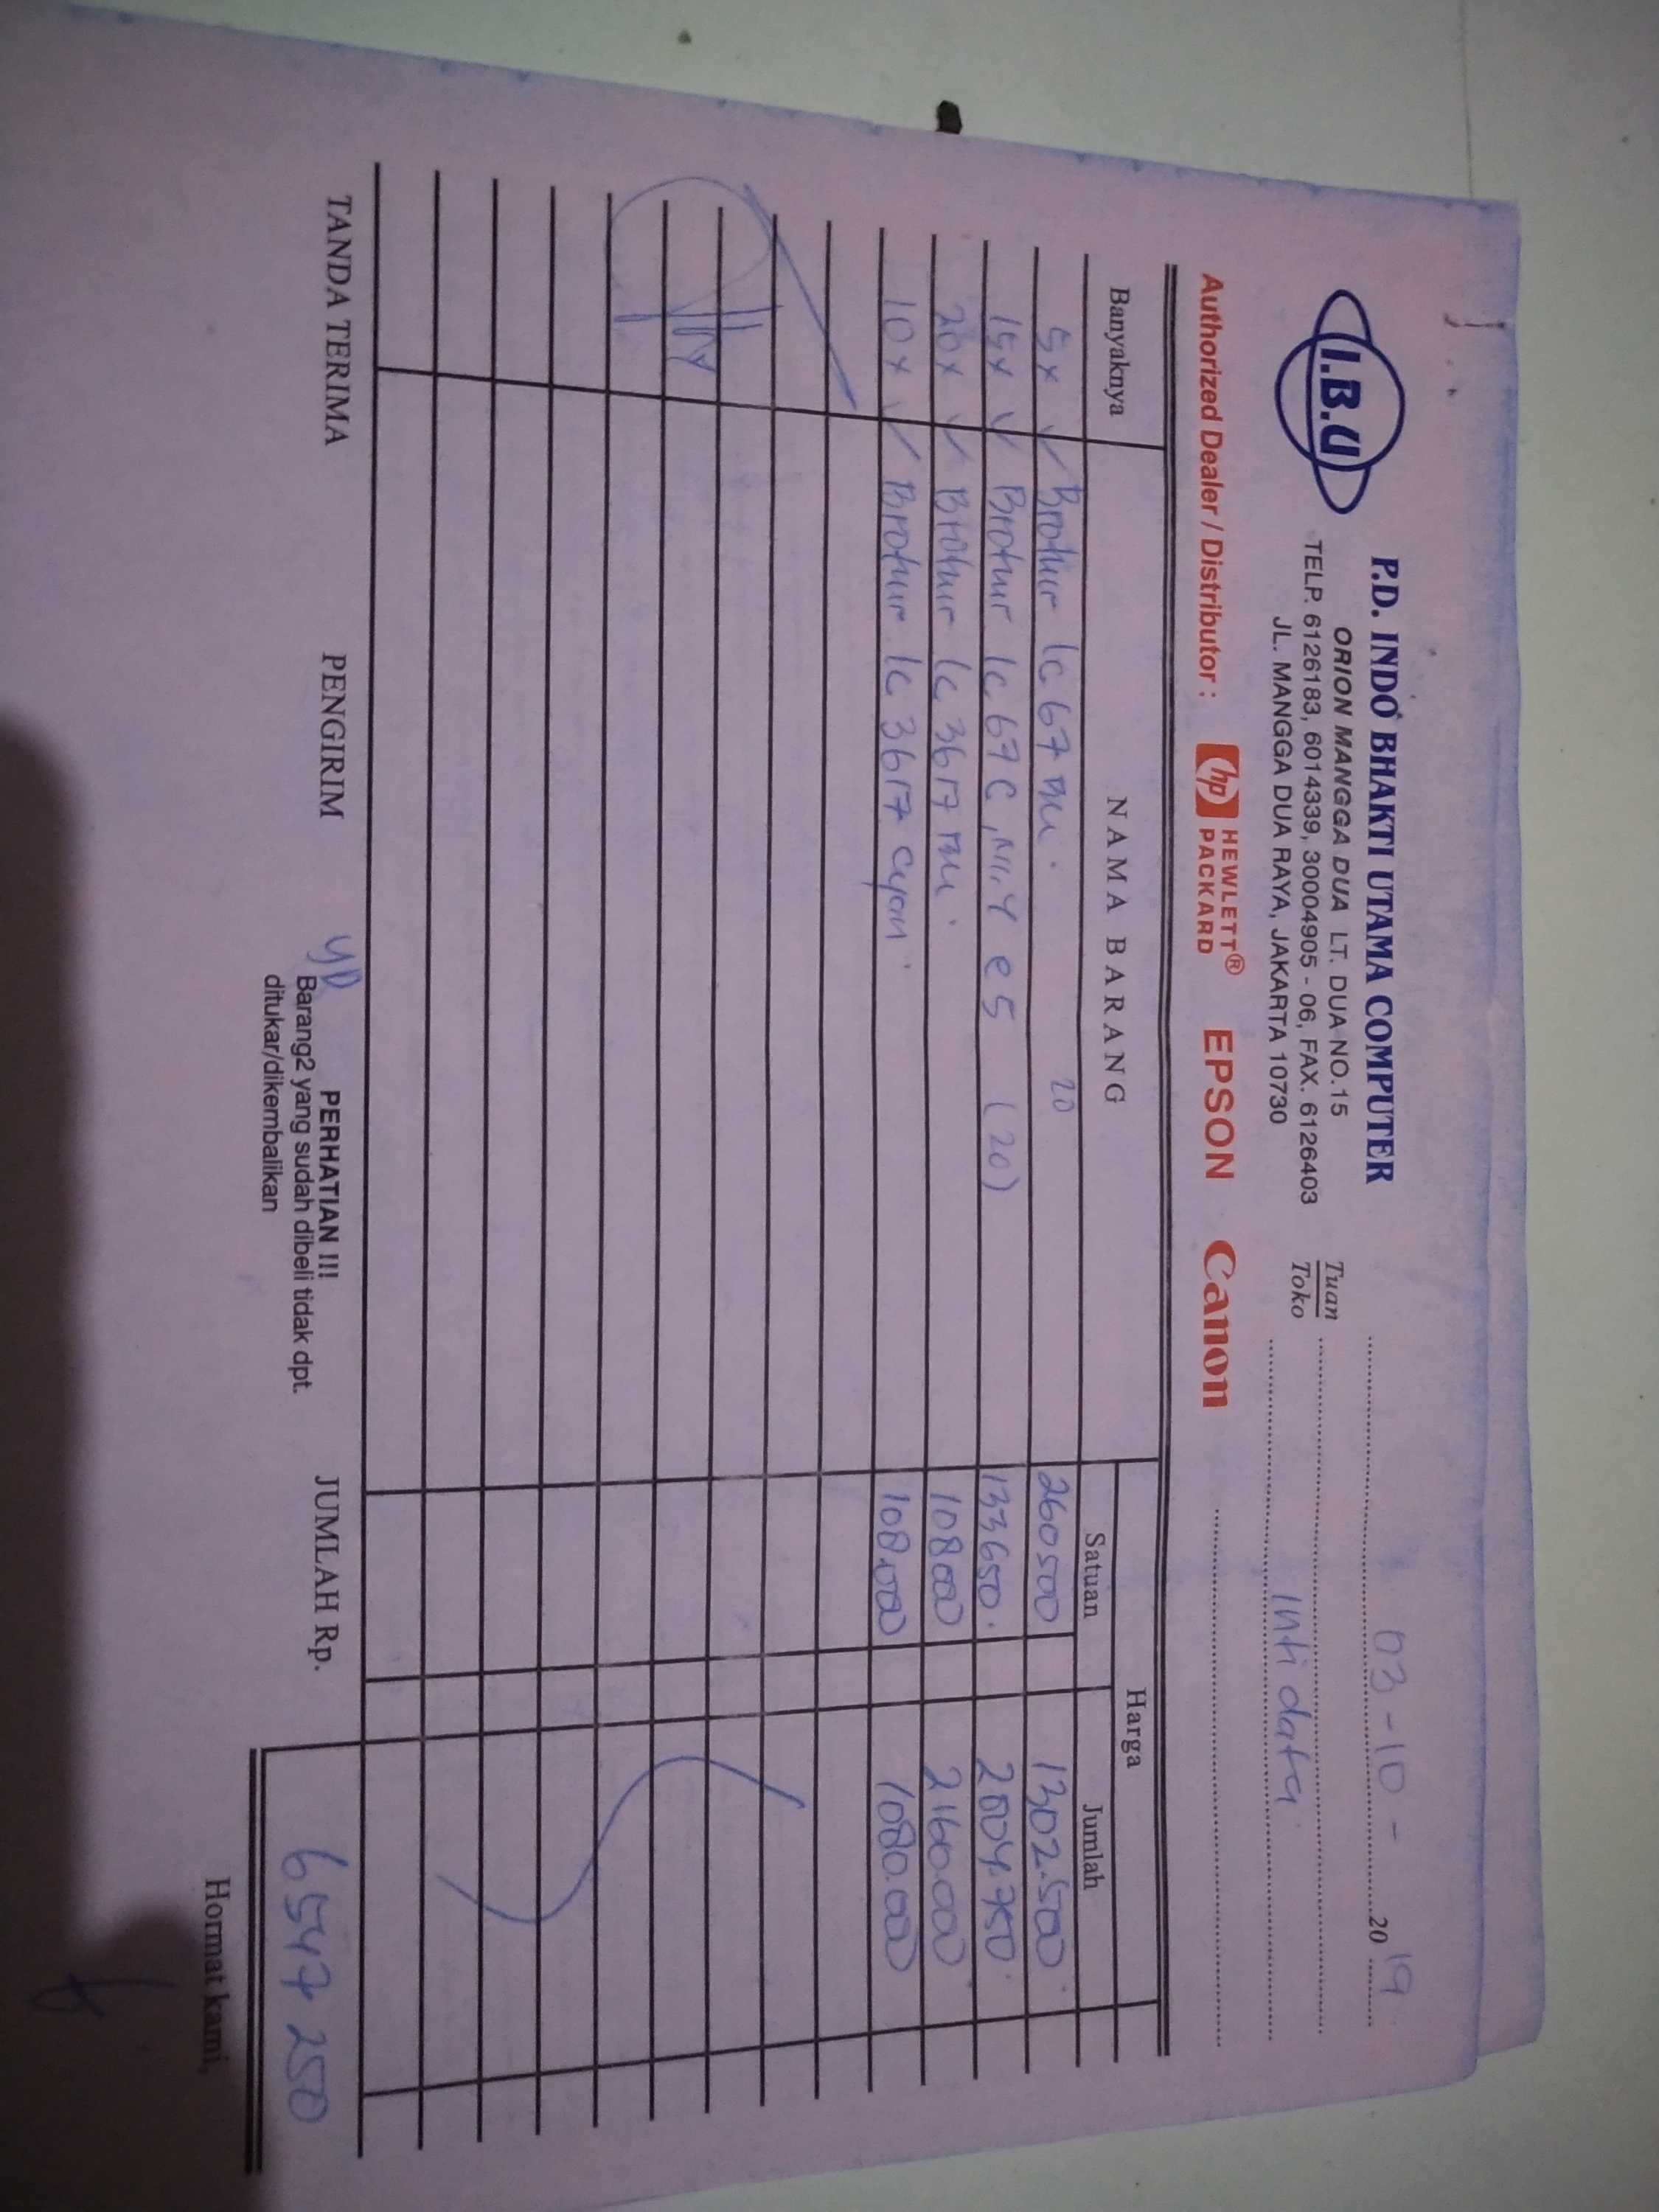 I.B.U
P.D. INDO BHAKTI UTAMA COMPUTER
ORION MANGGA DUA LT. DUA NO.15
TELP. 6126183, 6014339, 30004905 - 06, FAX. 6126403
JL. MANGGA DUA RAYA, JAKARTA 10730
03-10- 2019
Tuan
Toko
Inti data
Authorized Dealer / Distributor : hp HEWLETT® PACKARD EPSON Canon
Banyaknya NAMA BARANG Harga
Satuan Jumlah
5x Brother lc 67 20 260500 1302.500
15x Brother lc 67 C, M, Y e 5 (20) 133650 2004.750
20x Brother lc 3617 108000 2160.000
10x Brother lc 3617 cyan 108.000 1080.000
TANDA TERIMA PENGIRIM PERHATIAN !!! JUMLAH Rp. 6547 250
Barang2 yang sudah dibeli tidak dpt.
ditukar/dikembalikan
Hormat kami,